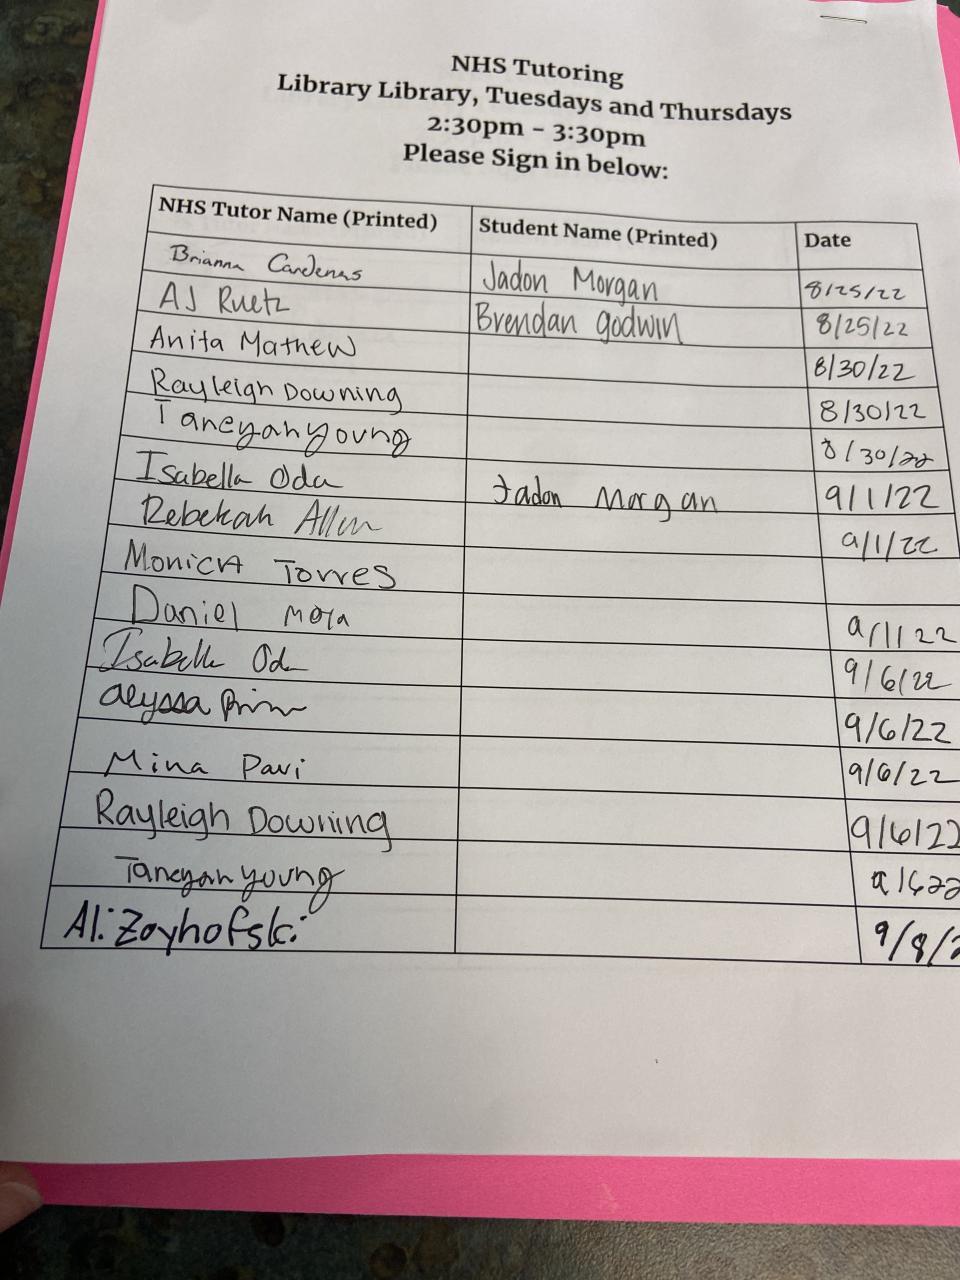 NHS Tutoring
Library Library, Tuesdays and Thursdays
2:30pm - 3:30pm
Please Sign in below:
NHS Tutor Name (Printed) Student Name (Printed) Date
Brianna Cardenas Jadon Morgan 8/25/22
AJ Ruetz Brendan godwin 8/25/22
Anita Mathew 8/30/22
Rayleigh Downing 8/30/22
Taneyah young 8/30/22
Isabella Oda Jadon Morgan 9/1/22
Rebekah Allen 9/1/22
Monica Torres
Daniel 9/1/22
Isabella Oda 9/6/22
alyssa 9/6/22
Mina Pavi 9/6/22
Rayleigh Downing 9/6/22
Taneyah young 9/6/22
Ali Zoyhofski 9/8/2